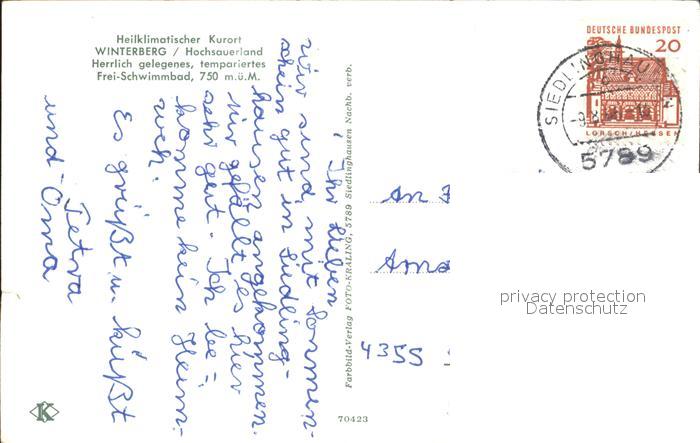 Heilklimatischer Kurort
WINTERBERG / Hochsauerland
Herrlich gelegenes, tempariertes
Frei-Schwimmbad, 750 m.ü.M.
DEUTSCHE BUNDESPOST
20
LORSCH/HESSEN
SIEDLINGHAU
5789
Ihr Lieben,
wir sind mit Sonnen-
schein gut in Siedling-
hausen angekommen.
Mir gefällt es hier
sehr gut. Ich be=
komme kein Heim-
weh.
Es grüßt u. küßt
Petra
und Oma
Farbbild-Verlag FOTO-KRALING, 5789 Siedlinghausen Nachb. verb.
An
4355
privacy protection
Datenschutz
K
70423